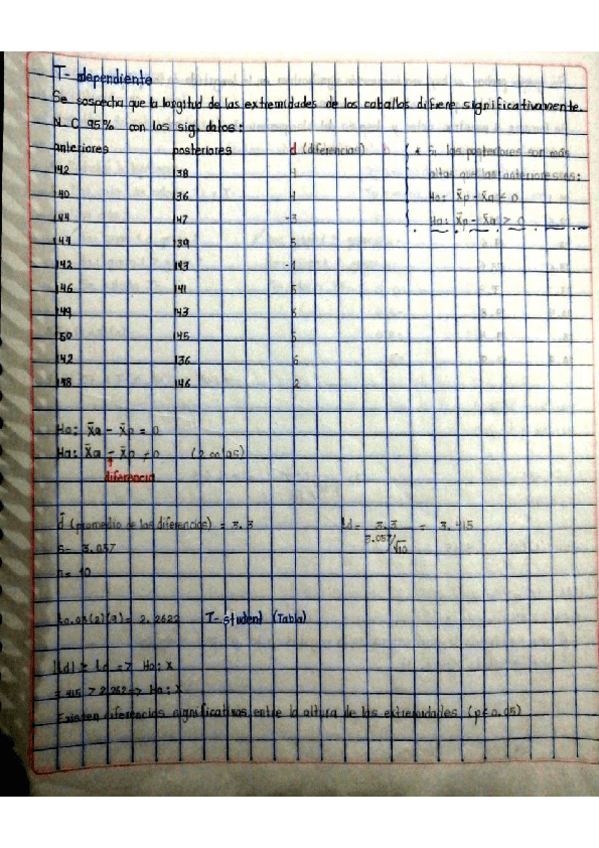 T- dependiente
Se sospecha que la longitud de las extremidades de los caballos difiere significativamente.
N.C 95% con los sig. datos:
anteriores posteriores d (diferencias)
142 138 4
140 136 4
144 147 -3
144 139 5
142 143 -1
146 141 5
149 143 6
150 145 5
142 136 6
148 146 2
* Si las posteriores son más
altas que las anteriores:
Ho: x̄p - x̄a ≤ 0
Ha: x̄p - x̄a > 0
Ho: x̄a - x̄p = 0
Ha: x̄a - x̄p ≠ 0 (2 colas)
diferencia
d̄ (promedio de las diferencias) = 3.3 td= 3.3 / 3.057/√10 = 3.415
s= 3.057
n= 10
t0.05(2)(9)= 2.2622 T-student (Tabla)
Ho: x
7 2.262 => Ho: X
Existen diferencias significativas entre la altura de las extremidades (p<0.05)